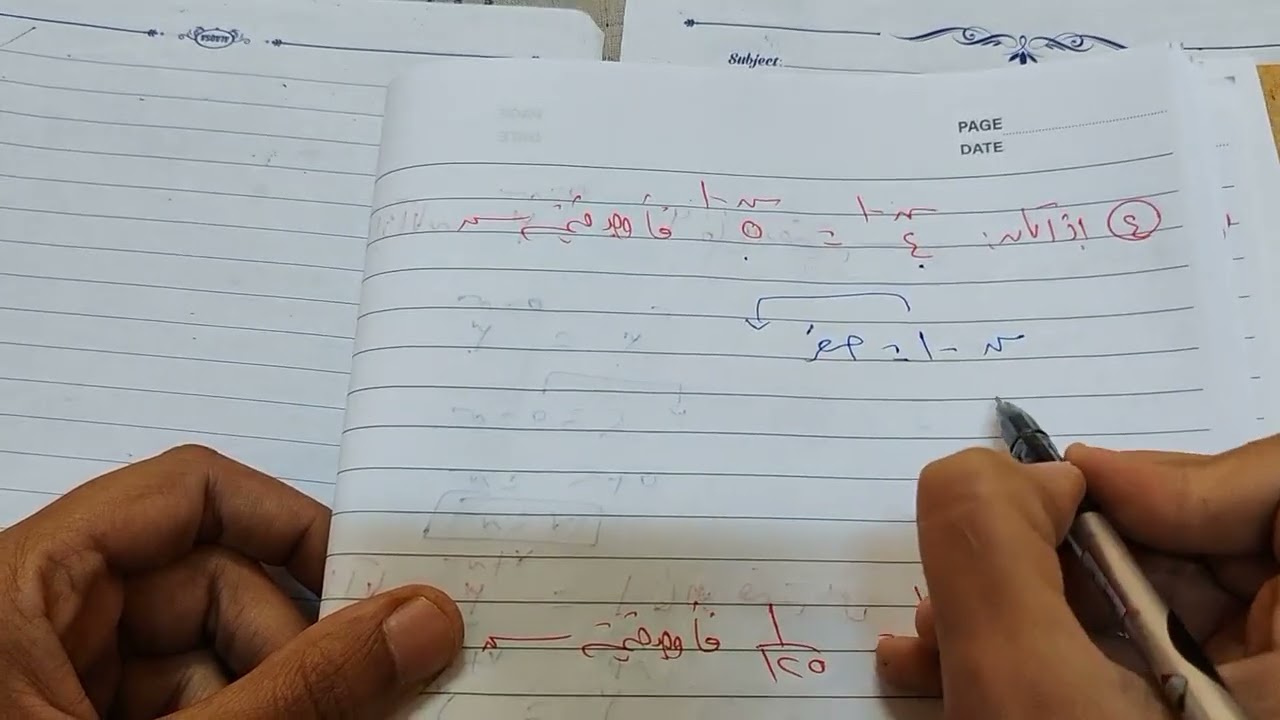 Subject:
PAGE
DATE
④ إذا كان ٤^(س-١) = ٥^(س-١) فأوجد قيمة س
س - ١ = صفر
١/١٢٥ فأوجد قيمة س